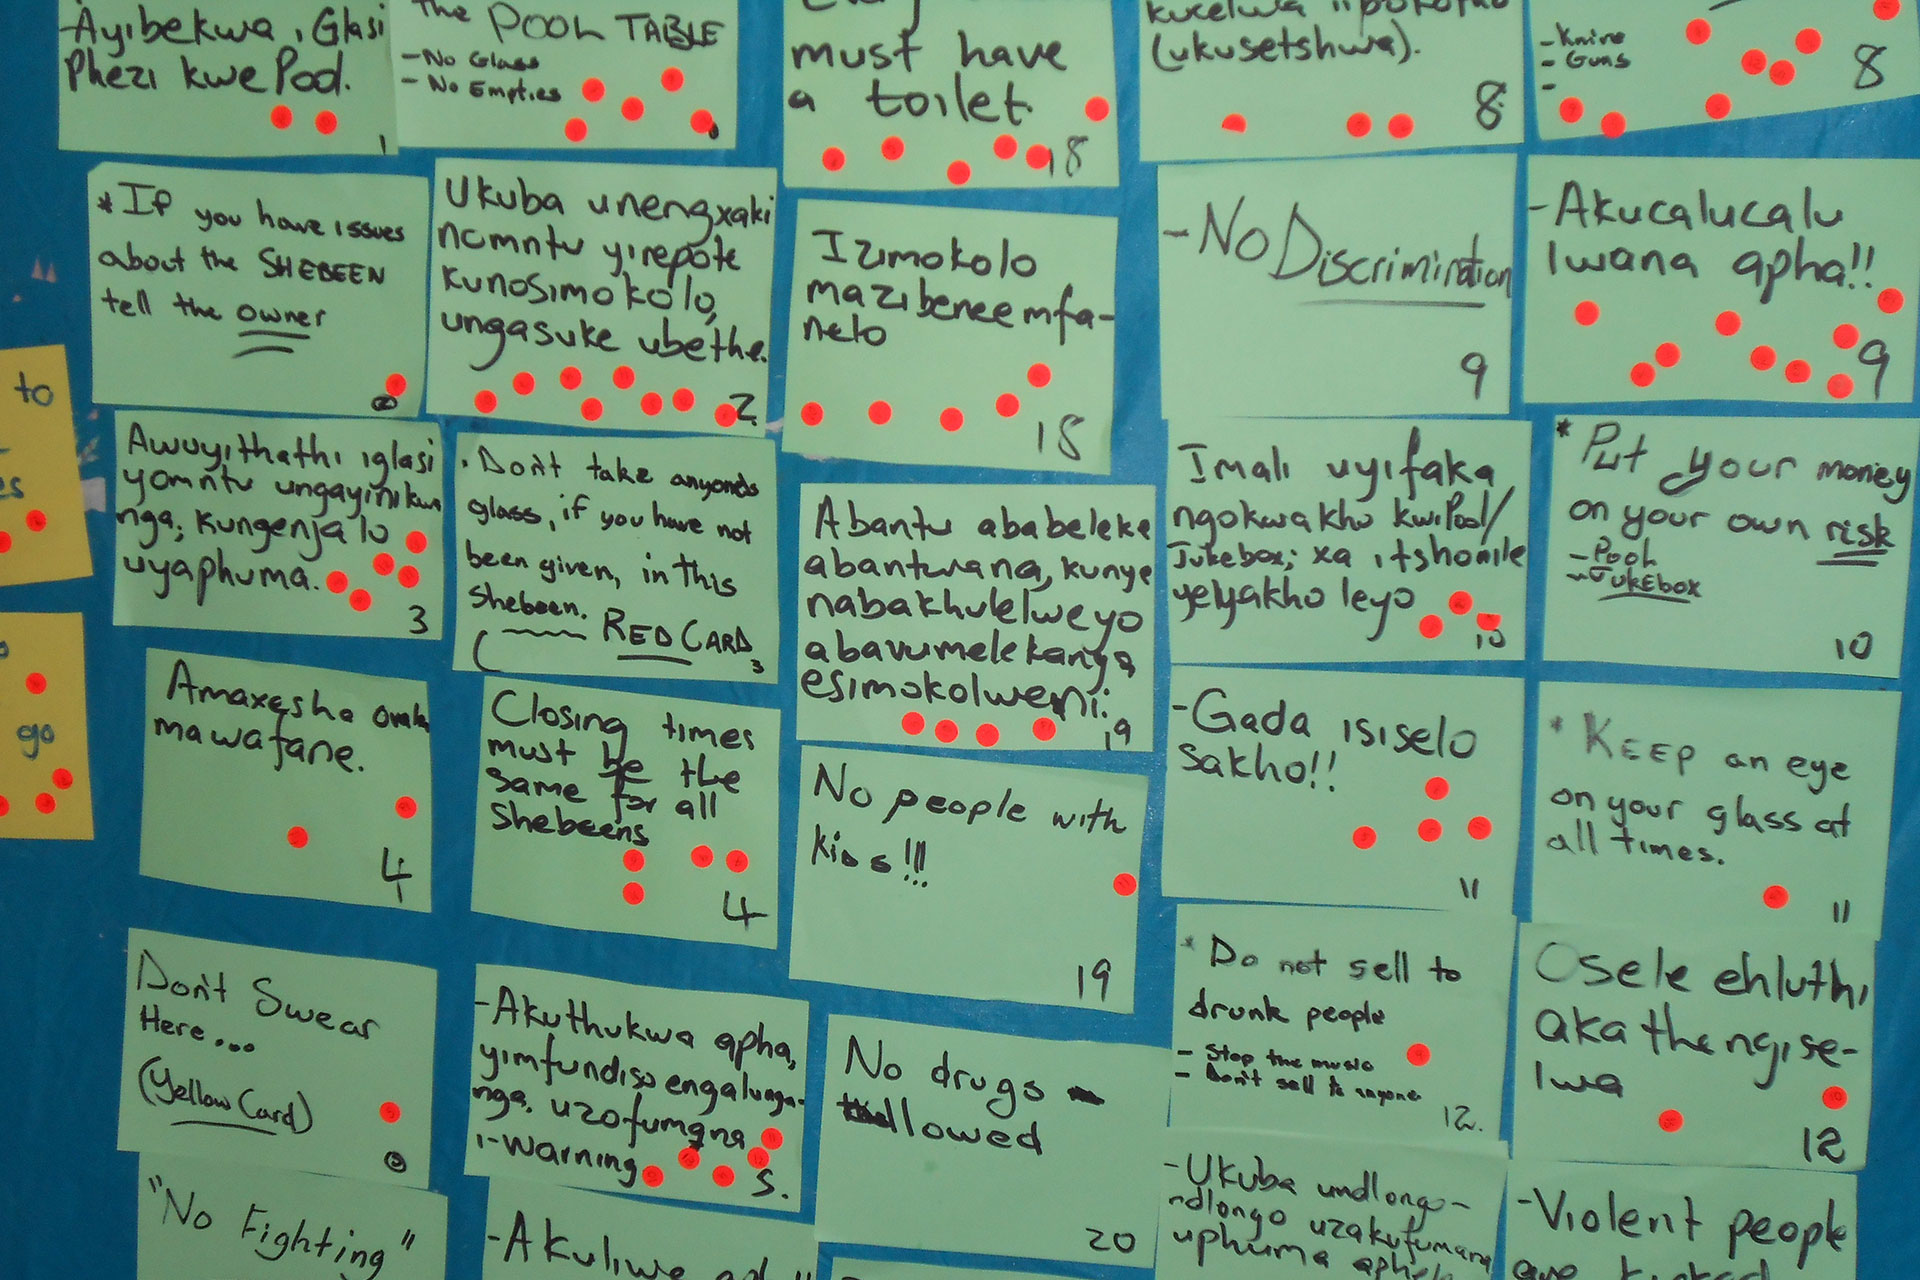 Ayibekwa iGlasi
Phezi kwe Pool.
1
The POOL TABLE
- No Glass
- No Empties
must have
a toilet.
18
(ukusetshwa).
8
- Knive
- Guns
-
8
* If you have issues
about the SHEBEEN
tell the owner
2
Ukuba unengxaki
nomntu yirepote
kunosimokolo,
ungasuke ubethe.
2
Izimokolo
mazibeneemfa-
nelo
18
- No Discrimination
9
- Akucalucalu
lwana apha!!
9
to
Awuyithathi iglasi
yomntu ungayinikwa
nga; kungenjalo
uyaphuma.
3
. Don't take anyones
glass, if you have not
been given, in this
Shebeen.
RED CARD
3
Abantu ababeleke
abantwana, kunye
nabakhulelweyo
abavumelekanga
esimokolweni.
19
Imali uyifaka
ngokwakho kwiPool/
Jukebox; xa itshonile
yelyakho leyo
10
* Put your money
on your own risk
- Pool
- JukEbox
10
go
Amaxesha
mawafane.
4
Closing times
must be the
same for all
Shebeens
4
No people with
kids!!!
19
- Gada isiselo
sakho!!
11
* KEEP an eye
on your glass at
all times.
11
Don't Swear
Here...
(Yellow Card)
- Akuthukwa apha,
yimfundiso engalunga-
nga. uzofumana
i-warning
5.
No drugs
allowed
20
* Do not sell to
drunk people
- Stop the music
- Don't sell to anyone
12.
Osele ehluthi
akathengise-
lwa
12
"No Fighting"
- Akuliwa
- Ukuba undlongo-
ndlongo uzakufumana
uphuma
- Violent people